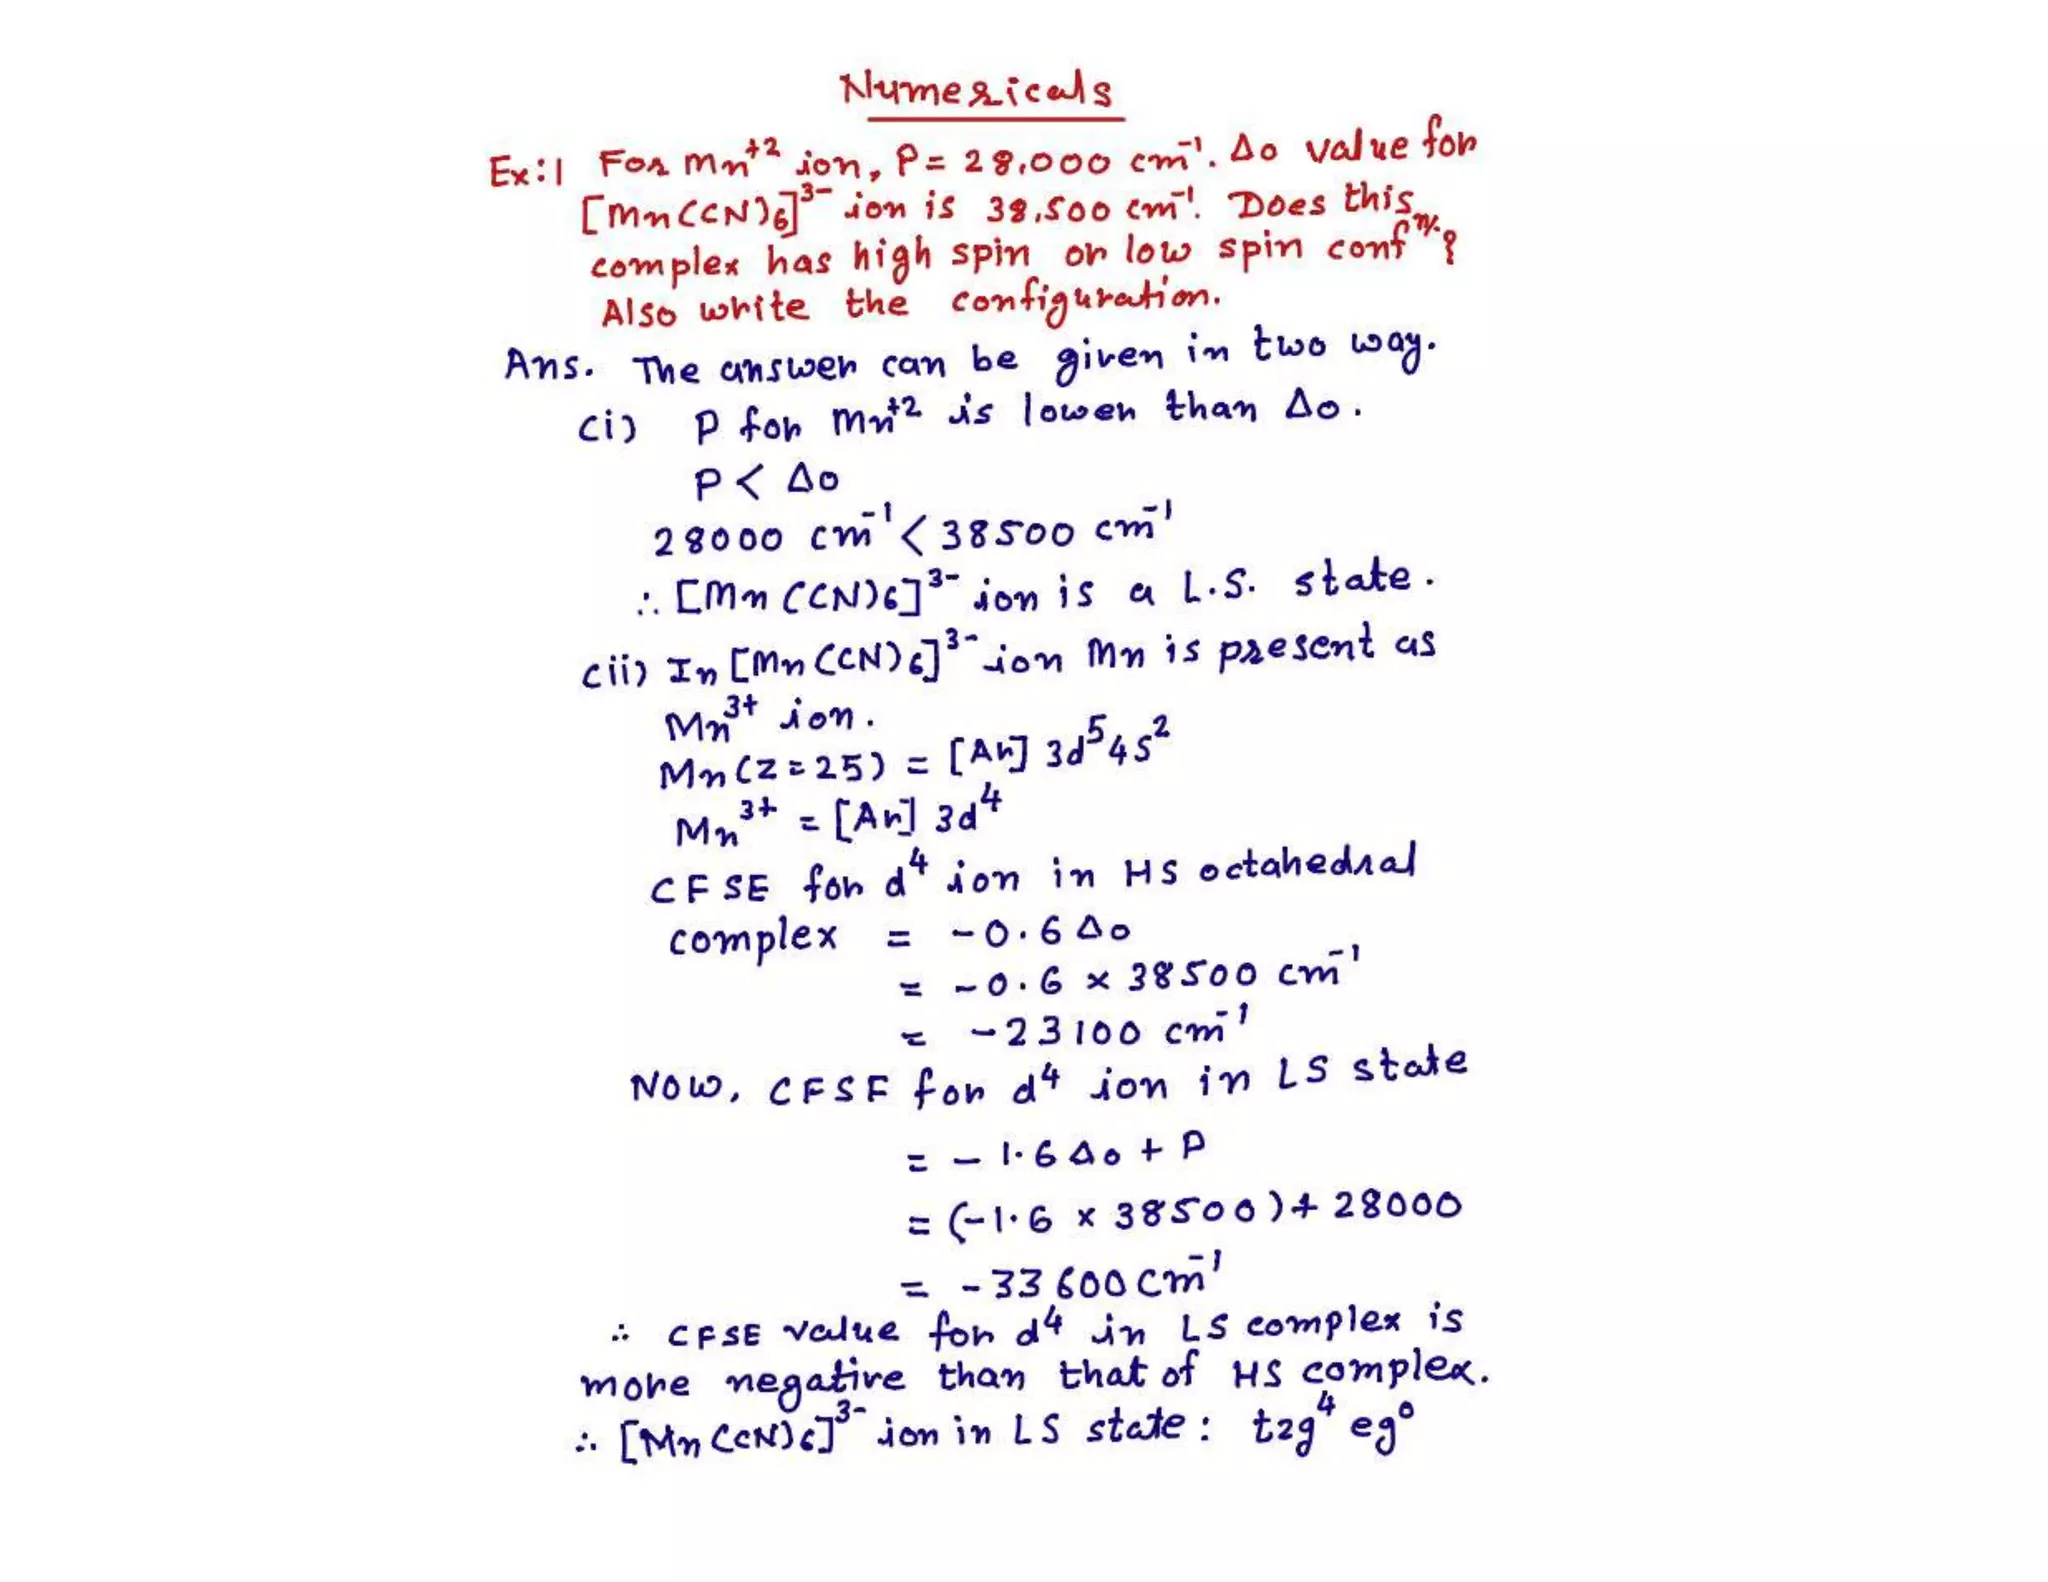 Numericals
Ex:1 For Mn⁺² ion, P = 28,000 cm⁻¹. Δo value for
[Mn(CN)6]³⁻ ion is 38,500 cm⁻¹. Does this
complex has high spin or low spin confⁿ.?
Also write the configuration.
Ans. The answer can be given in two way.
(i) P for Mn⁺² is lower than Δo.
P < Δo
28000 cm⁻¹ < 38500 cm⁻¹
∴ [Mn(CN)6]³⁻ ion is a L.S. state.
(ii) In [Mn(CN)6]³⁻ ion Mn is present as
Mn³⁺ ion.
Mn(Z=25) = [Ar] 3d⁵4s²
Mn³⁺ = [Ar] 3d⁴
CFSE for d⁴ ion in HS octahedral
complex = -0.6 Δo
= -0.6 × 38500 cm⁻¹
= -23100 cm⁻¹
Now, CFSF for d⁴ ion in LS state
= -1.6 Δo + P
= (-1.6 × 38500) + 28000
= -33600 cm⁻¹
∴ CFSE value for d⁴ in LS complex is
more negative than that of HS complex.
∴ [Mn(CN)6]³⁻ ion in LS state : t2g⁴ eg⁰